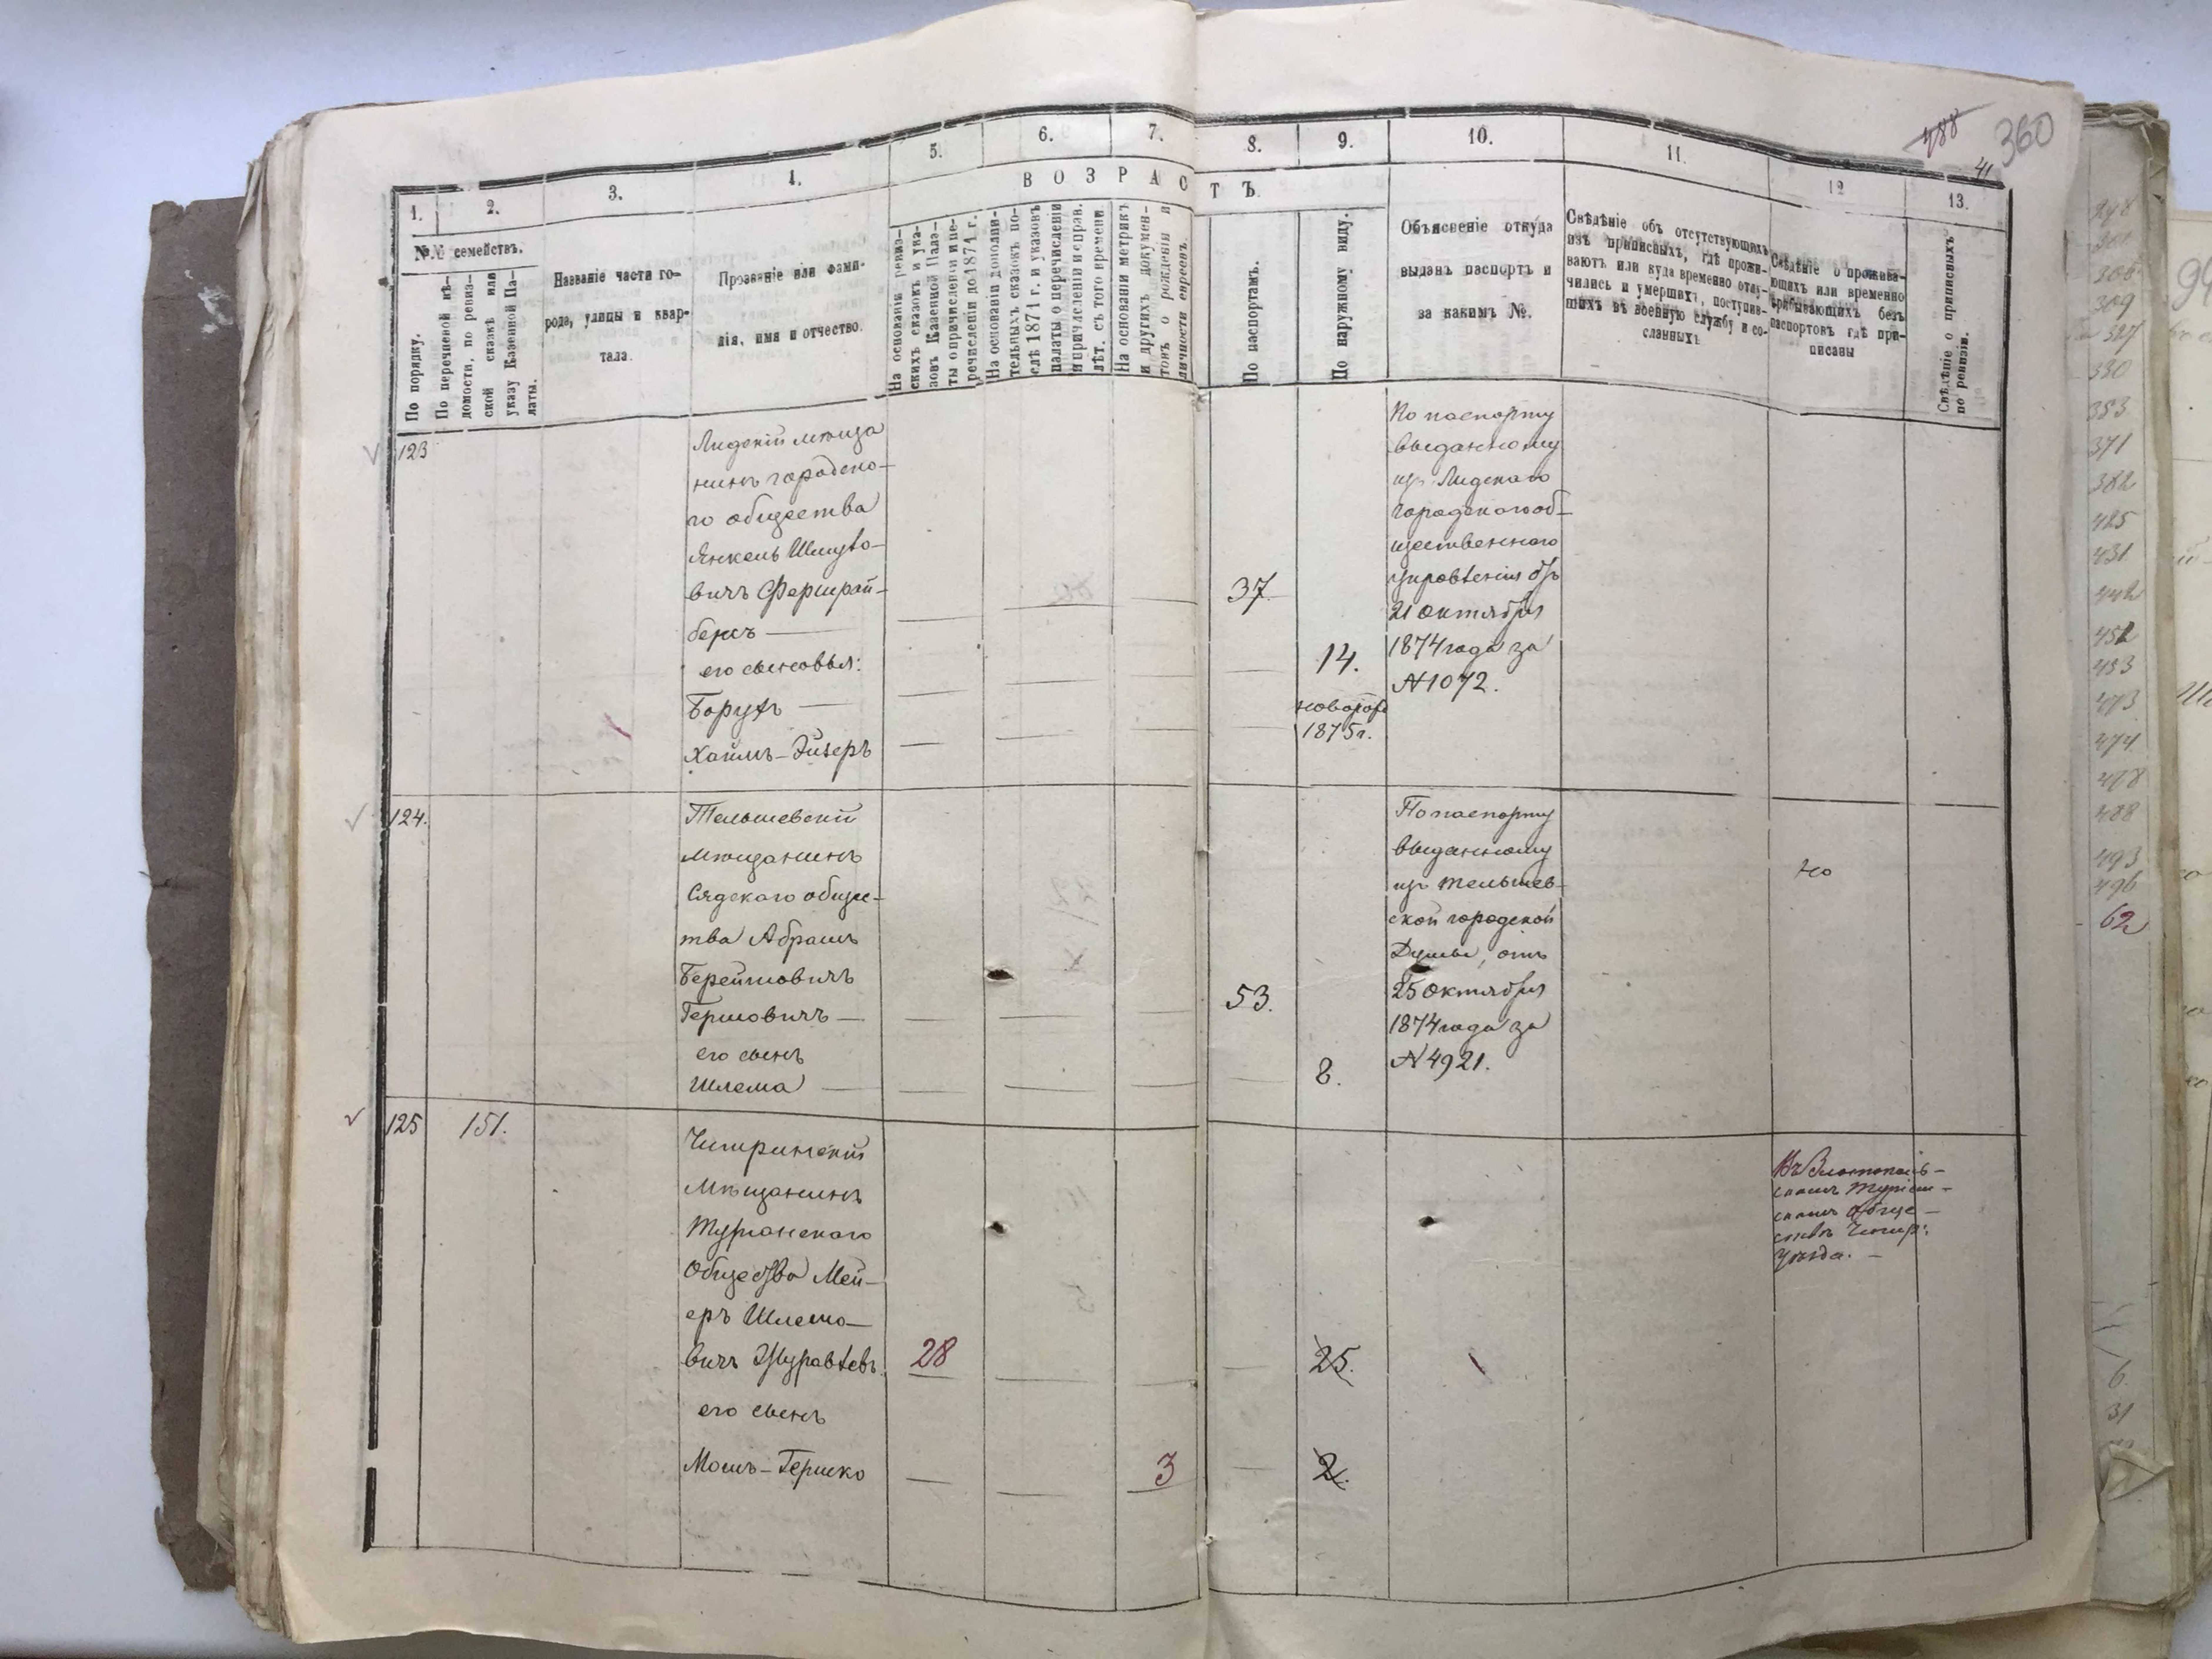 488
360
41
1.
2.
3.
4.
5.
6.
7.
8.
9.
10.
11.
12
13.
№№ семействъ.
По порядку.
По перечневой вѣ-
домости, по ревиз-
ской сказкѣ или
указу Казенной Па-
латы.
Названіе части го-
рода, улицы и квар-
тала.
Прозваніе или фами-
лія, имя и отчество.
ВОЗРАСТЪ.
На основаніи ревиз-
скихъ сказокъ и ука-
зовъ Казенной Пала-
ты о причисленіи и пе-
речисленіи до 1871 г.
На основаніи дополни-
тельныхъ сказокъ по-
слѣ 1871 г. и указовъ
палаты о перечисленіи
и причисленіи и справ.
лѣт. съ того времени.
На основаніи метрикъ
и другихъ докумен-
товъ о рожденіи и
личности евреевъ.
По паспортамъ.
По наружному виду.
Объясненіе откуда
выданъ паспортъ и
за какимъ №.
Свѣдѣніе объ отсутствующихъ
изъ приписныхъ, гдѣ прожи-
ваютъ или куда временно отлу-
чились и умершихъ, поступив-
шихъ въ военную службу и со-
сланныхъ
Свѣдѣніе о прожива-
ющихъ или временно
прибывающихъ безъ
паспортовъ гдѣ при-
писаны
Свѣдѣніе о приписныхъ
по ревизіи.
123
Лидскій мѣща
нинъ городско-
го общества
Янкель Шмуло-
вичъ
его сыновья:
Борухъ
Хаимъ-Эйзеръ
37.
14.
новорож
1875г.
По паспорту
выданному
изъ Лидскаго
городского об-
щественнаго
управленія отъ
21 октября
1874 года за
№ 1072.
124.
Тельшевскій
мѣщанинъ
Сядскаго общес-
тва Абрамъ
Берелиовичъ
Гершовичъ
его сынъ
Шлема
53.
8.
По паспорту
выданному
изъ Тельшев-
ской городской
Думы, отъ
25 октября
1874 года за
№ 4921.
125
151.
Чигиринскій
Мѣщанинъ
Туріанскаго
Общества Мей-
еръ Шлемо-
вичъ Журавлевъ.
его сынъ
Мошъ-Гершко
28
25.
3
2.
Въ Златополь-
скомъ Туріан-
скомъ обще-
ствѣ Чигир:
уѣзда.
298
309
327
330
353
371
382
425
431
442
452
453
473
474
478
488
493
496
62
6
31